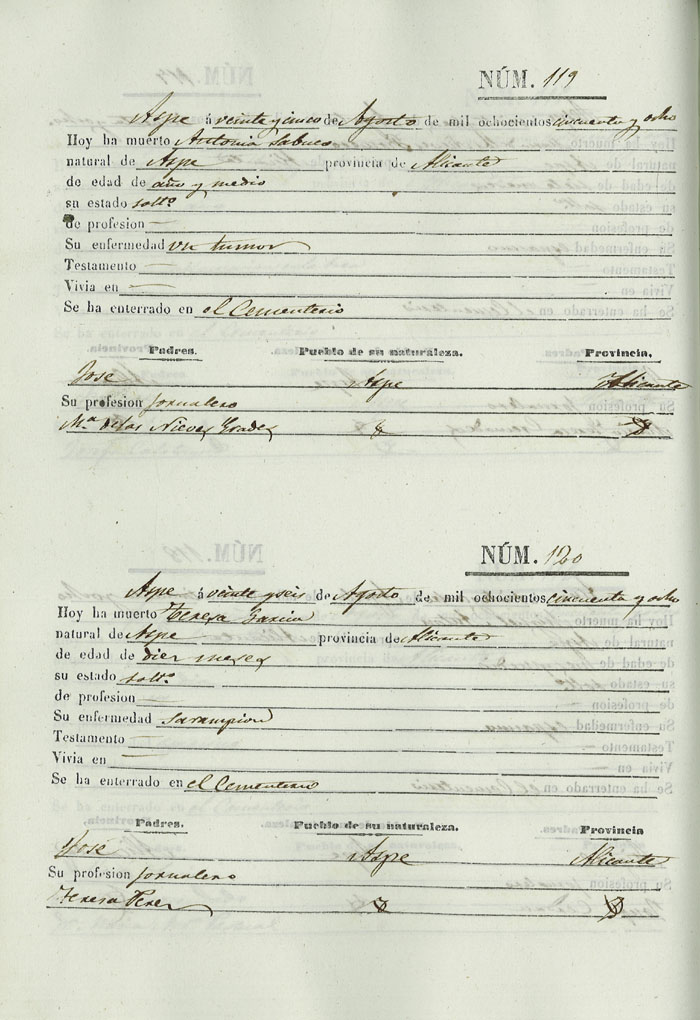 NÚM. 119
Aspe á veinte y cinco de Agosto de mil ochocientos cincuenta y ocho
Hoy ha muerto Antonia Sabuco
natural de Aspe provincia de Alicante
de edad de año y medio
su estado soltº
de profesion —
Su enfermedad un tumor
Testamento —
Vivia en —
Se ha enterrado en el Cementerio
Padres. Pueblo de su naturaleza. Provincia.
José Aspe Alicante
Su profesion Jornalero
Mª de las Nieves
NÚM. 120
Aspe á veinte y seis de Agosto de mil ochocientos cincuenta y ocho
Hoy ha muerto Teresa Garcia
natural de Aspe provincia de Alicante
de edad de diez meses
su estado soltº
de profesion —
Su enfermedad sarampion
Testamento —
Vivia en —
Se ha enterrado en el Cementerio
Padres. Pueblo de su naturaleza. Provincia
José Aspe Alicante
Su profesion Jornalero
Teresa Perez